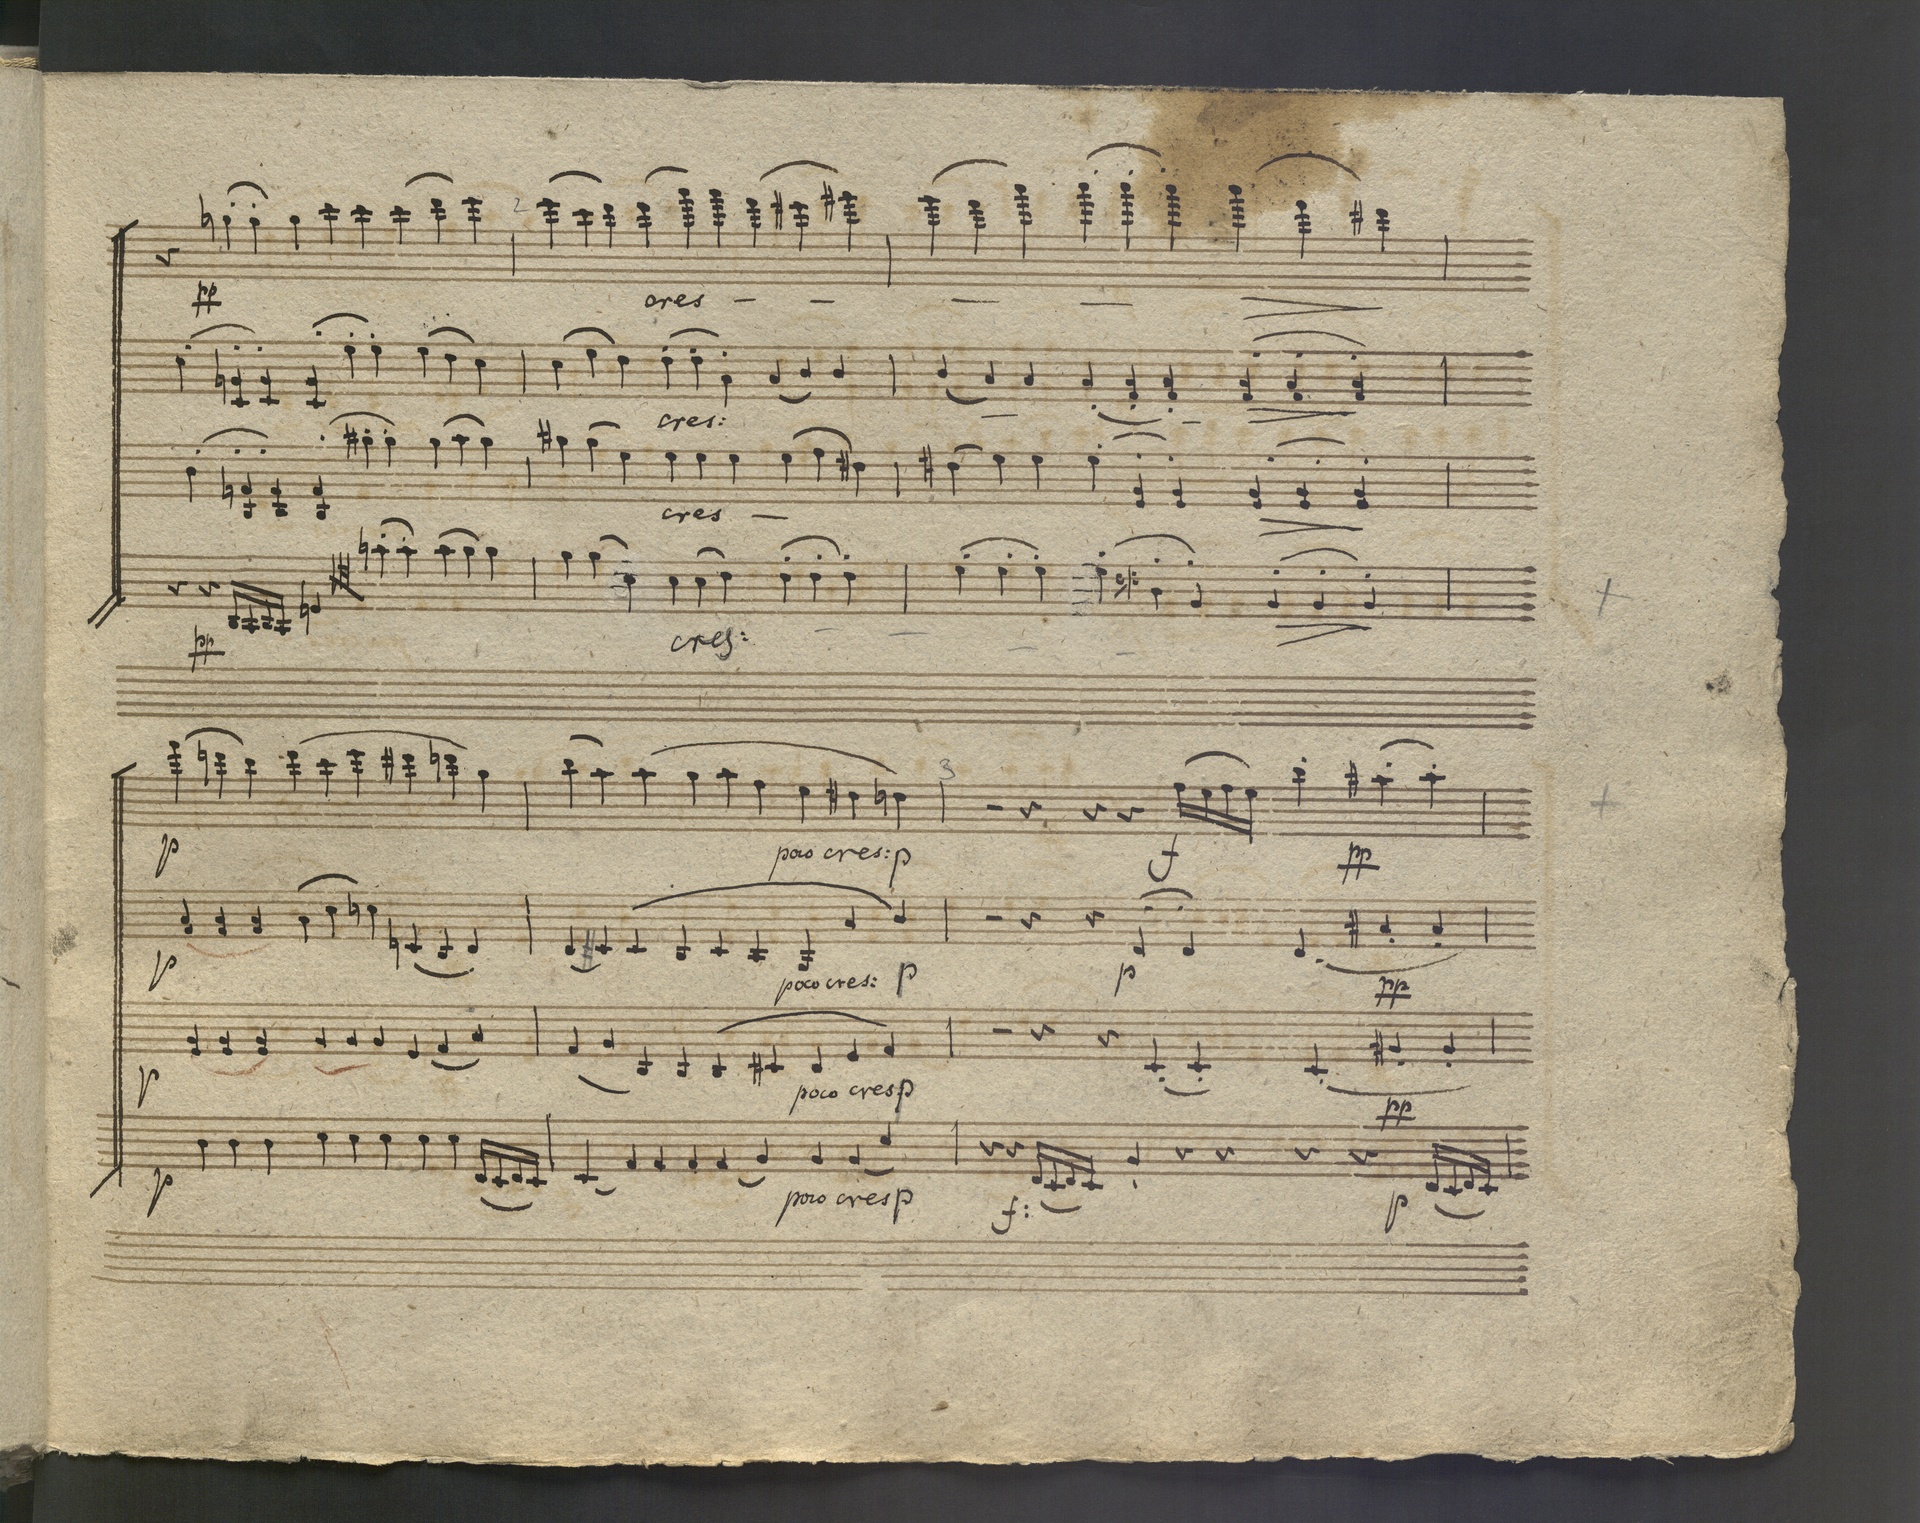 2
pp cres
cres:
cres
pp cres:
3
p poco cres: p f pp
p poco cres: p p pp
p poco cres p pp
p poco cres p f: p